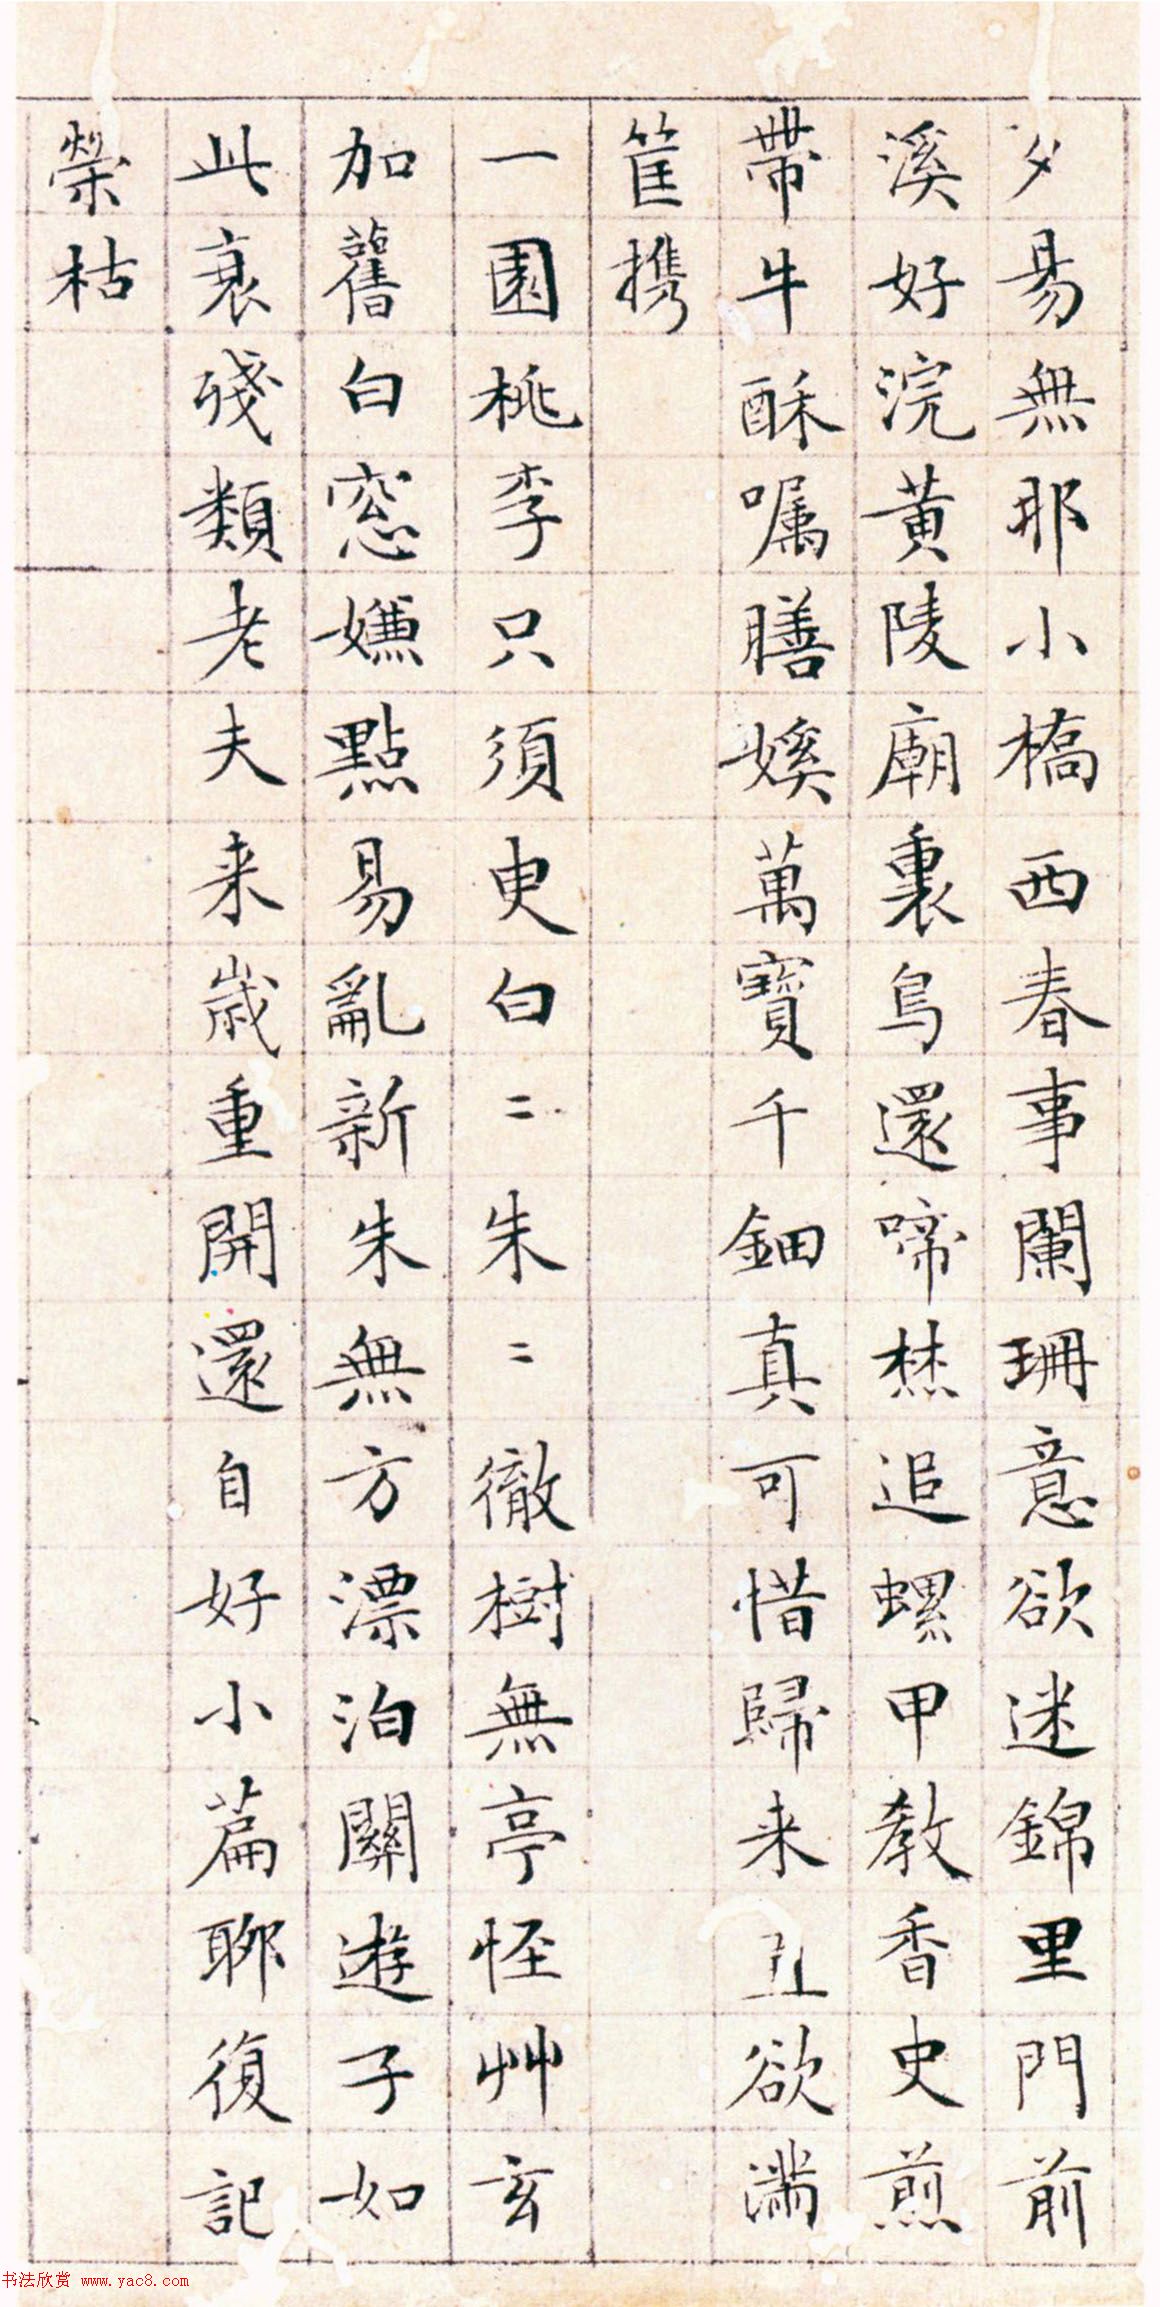 夕易無那小橋西春事闌珊意欲迷錦里門前
溪好浣黄陵廟裏鳥還啼焚追螺甲教香史煎
帶牛酥嘱膳媛萬寶千鈿真可惜歸来丑欲满
筐携
一園桃李只須臾白〻朱〻徹樹無亭怪艸玄
加舊白窓嫌點易亂新朱無方漂泊關遊子如
此衰殘類老夫来歲重開還自好小篇聊復記
榮枯
书法欣赏 www.yac8.com